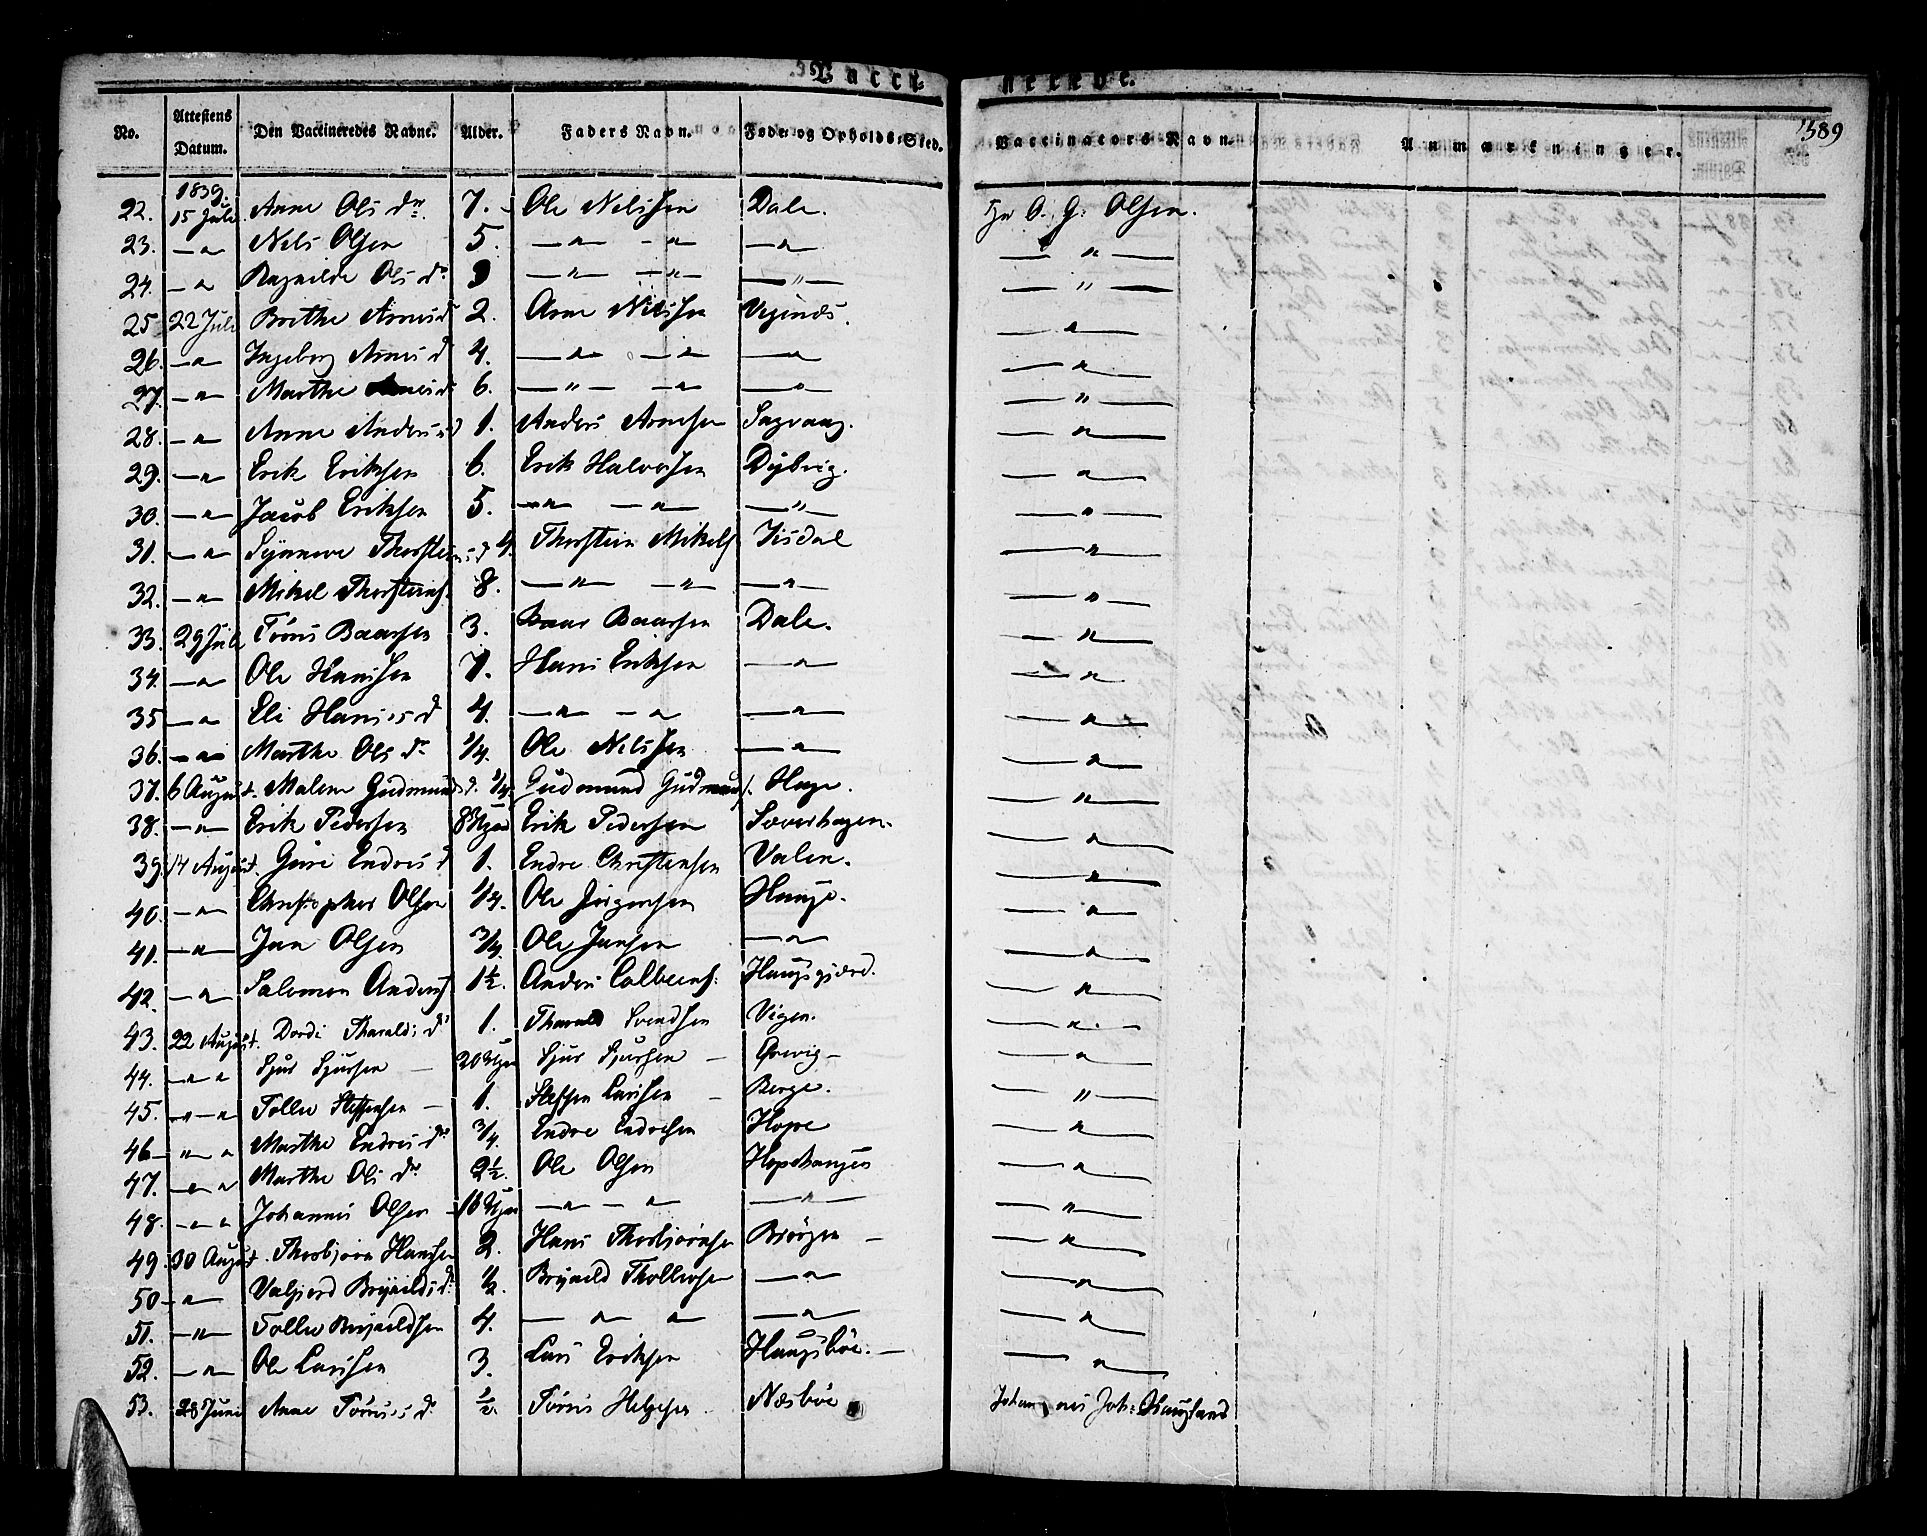 Vacci- nerede. 389
No. Attestens Datum. Den Vaccineredes Navne. Alder. Faders Navn. Føde og Opholds-Sted. Vaccinators Navn. Anmærkninger.
1839.
22. 15 Juli Anne Ols dr. 7. Ole Nilssen Dale. Hr O. G. Olsen.
23. —"— Nels Olsen 5. —"— —"— —"— —"—
24. —"— Ragnilde Ols dr 3 —"— —"— —"— —"—
25. 22 Juli Brithe Arnes d 2. Arne Nilssen —"—
26. —"— Ingeborg Arnes d 4. —"— —"— —"— —"—
27. —"— Marthe Arnes d 6. —"— —"— —"— —"—
28. —"— Anne Anders d 1. Anders Arnesen Sagvaag. —"—
29. —"— Erik Eriksen 6. Erik Halvorsen Dybvig. —"—
30. —"— Jacob Eriksen 5. —"— —"— —"— —"—
31. —"— Synneve Thorsteins d 4. Thorstein Mikels. Iisdal —"—
32. —"— Mikel Thorsteins. 8. —"— —"— —"— —"—
33. 29 Juli Tørris Baarsen 3. Baar Baarsen Dale. —"—
34. —"— Ole Hanssen 7. Hans Eriksen —"— —"—
35 —"— Eli Hanses d 4. —"— —"— —"— —"—
36. —"— Marthe Ols dr 1/4. Ole Nilssen —"— —"—
37. 6 August. Malene Gudmunds d. 1/4. Gudmund Gudmunds. Hage. —"—
38. —"— Erik Pedersen 8 Uger Erik Pedersen —"—
39. 14 August. Guri Endres d 1. Endre Christensen Valen. —"—
40. —"— Christopher Olsen 1/4. Ole Jørgensen Hauge. —"—
41. —"— Jan Olsen 3/4. Ole Jansen —"— —"—
42. —"— Salomon Anders. 1½. Anders Colbeens. Haugsgjærd. —"—
43. 22 August. Dordi Tharalds dr 1. Tharald Svendsen Vigen. —"—
44. —"— Sjur Sjursen — 20 Uger Sjur Sjursen — —"—
45. —"— Tollev Steffensen — 1. Steffen Larssen — Berge. —"—
46 —"— Marthe Endres dr 3/4. Endre Endresen Hope —"—
47. —"— Marthe Ols dr 2½. Ole Olsen —"—
48. —"— Johannes Olsen — 16 Uger —"— —"— —"— —"—
49. 30 August. Thorbjørn Hansen 2. Hans Thorbjørnsen Bjørgen — —"—
50 —"— Valgjerd Brynilds dr ½. Brynild Thollevsen —"— —"—
51. —"— Tollev Brynildsen 4. —"— —"— —"— —"—
52. —"— Ole Larssen 3. Lars Eriksen Haugsbøe. — —"—
53. 28 Juni Anne Tørrises dr ½. Tørris Helgesen Næsbøe Johannes Joh: Haugland